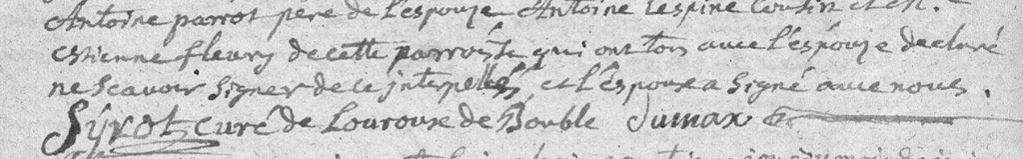 Antoine parrot pere de l'espouse Antoine lespine Cousin et
estienne fleury de cette parroisse qui ont tous avec l'espouse declaré
ne scavoir signer de ce jnterpellés et l'espoux a signé avec nous.
Syrot, curé de Louroux de Bouble Dumax